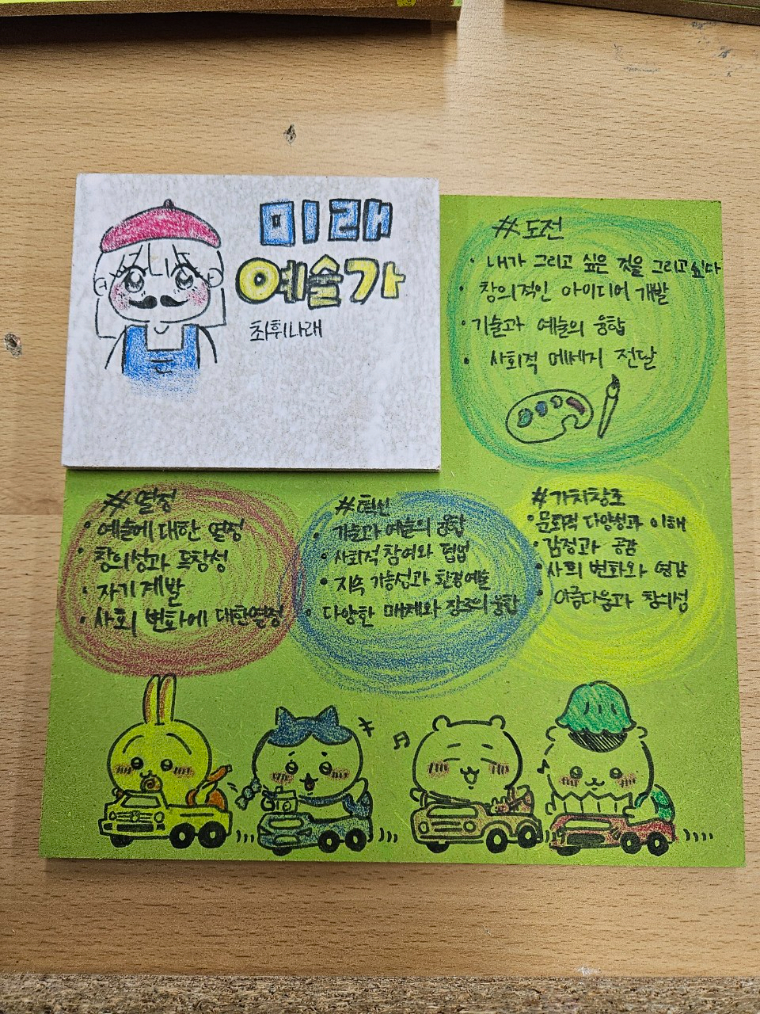 미래
예술가
최휘나래
#도전
• 내가 그리고 싶은 것을 그리고싶다
• 창의적인 아이디어 개발
• 기술과 예술의 융합
• 사회적 메세지 전달
#열정
• 예술에 대한 열정
• 창의성과 독창성
• 자기계발
• 사회 변화에 대한열정
#혁신
• 기술과 예술의 융합
• 사회적 참여와 협업
• 지속 가능성과 환경예술
• 다양한 매체와 장르의 융합
#가치창조
• 문화적 다양성과 이해
• 감정과 공감
• 사회 변화와 영감
• 아름다움과 창의성